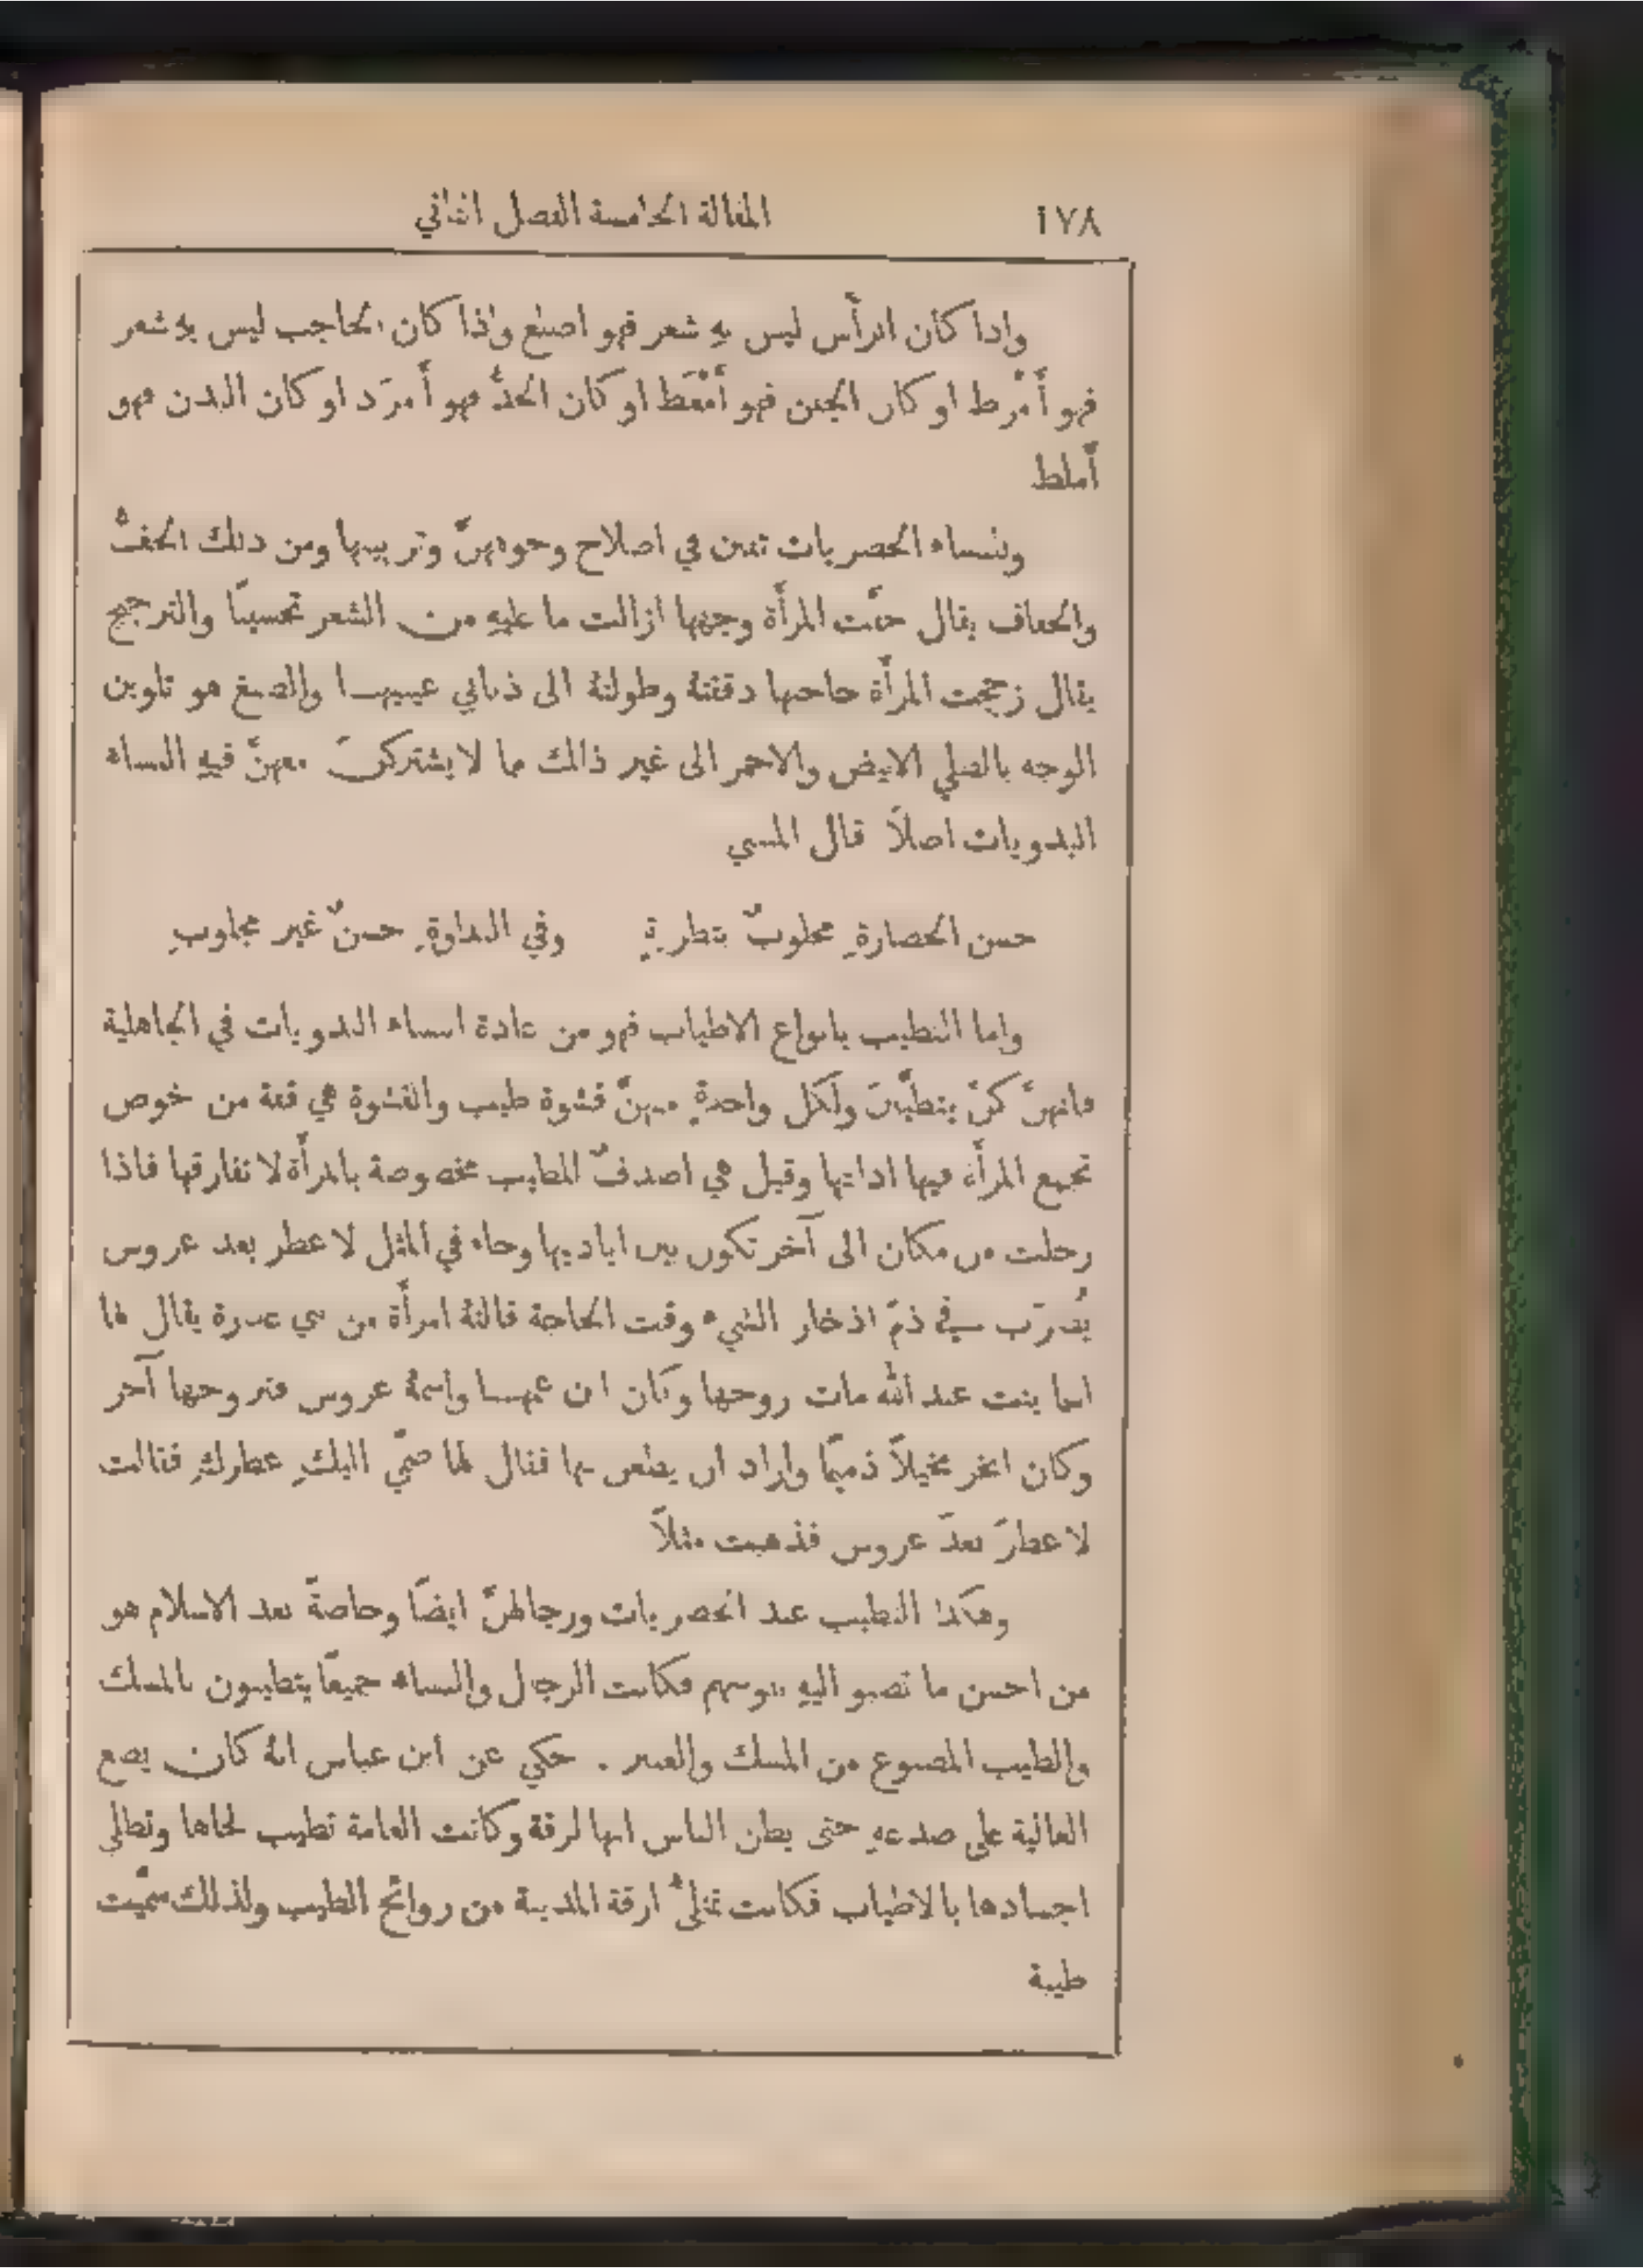 ١٧٨ المقالة الخامسة الفصل الثاني
واذا كان الرأس ليس به شعر فهو اصلع واذا كان الحاجب ليس به شعر
فهو أمرط او كان الجفن فهو أمعَط او كان الخدُّ فهو أمرَد او كان البدن فهو
أملط
ولنساء الحضريات تفنن في اصلاح وجوههنَّ وتزيينها ومن ذلك الحفُّ
والحفاف يقال حفَّت المرأة وجهها ازالت ما عليهِ من الشعر تحسينًا والتزجيج
يقال زججت المرأة حاجبها دققتهُ وطولتهُ الى ذنابي عينيها والصبغ هو تلوين
الوجه بالطلي الابيض والاحمر الى غير ذالك مما لا يشتركنَ معهنَّ فيهِ النساء
البدويات اصلاً قال المتنبي
حسن الحضارةِ مجلوبٌ بتطريةٍ وفي البداوةِ حسنٌ غير مجلوبِ
واما التطيب بانواع الاطياب فهو من عادة النساء البدويات في الجاهلية
فانهنَّ كنَّ يتطيَّبنَ ولكل واحدةٍ منهنَّ قشوة طيب والقشوة هي قفة من خوص
تجمع المرأة فيها اداتها وقيل هي اصدفٌ للطيب مخصوصة بالمرأة لا تفارقها فاذا
رحلت من مكان الى آخر تكون بين اياديها وجاء في المثل لا عطر بعد عروس
يُضرَب في ذمّ اذخار الشيء وقت الحاجة قالتهُ امرأة من بني عذرة يقال لها
اسما بنت عبد الله مات زوجها وكان ابن عمها واسمهُ عروس فتزوجها آخر
وكان ابخر بخيلاً ذميمًا واراد ان يظعن بها فقال لها ضمّي اليكِ عطركِ فقالت
لا عطرَ بعدَ عروس فذهبت مثلاً
وهكذا التطيب عند الحضريات ورجالهنَّ ايضًا وخاصةً بعد الاسلام هو
من احسن ما تصبو اليهِ نفوسهم فكانت الرجال والنساء جميعًا يتطيبون بالمسك
والطيب المصنوع من المسك والعنبر . حكي عن ابن عباس انهُ كان يضع
الغالية على صدغهِ حتى يظن الناس انها لزقة وكانت العامة تطيب لحاها وتطلي
اجسادها بالاطياب فكانت تمتلئُ ازقة المدينة من روائح الطيب ولذلك سمّيت
طيبة